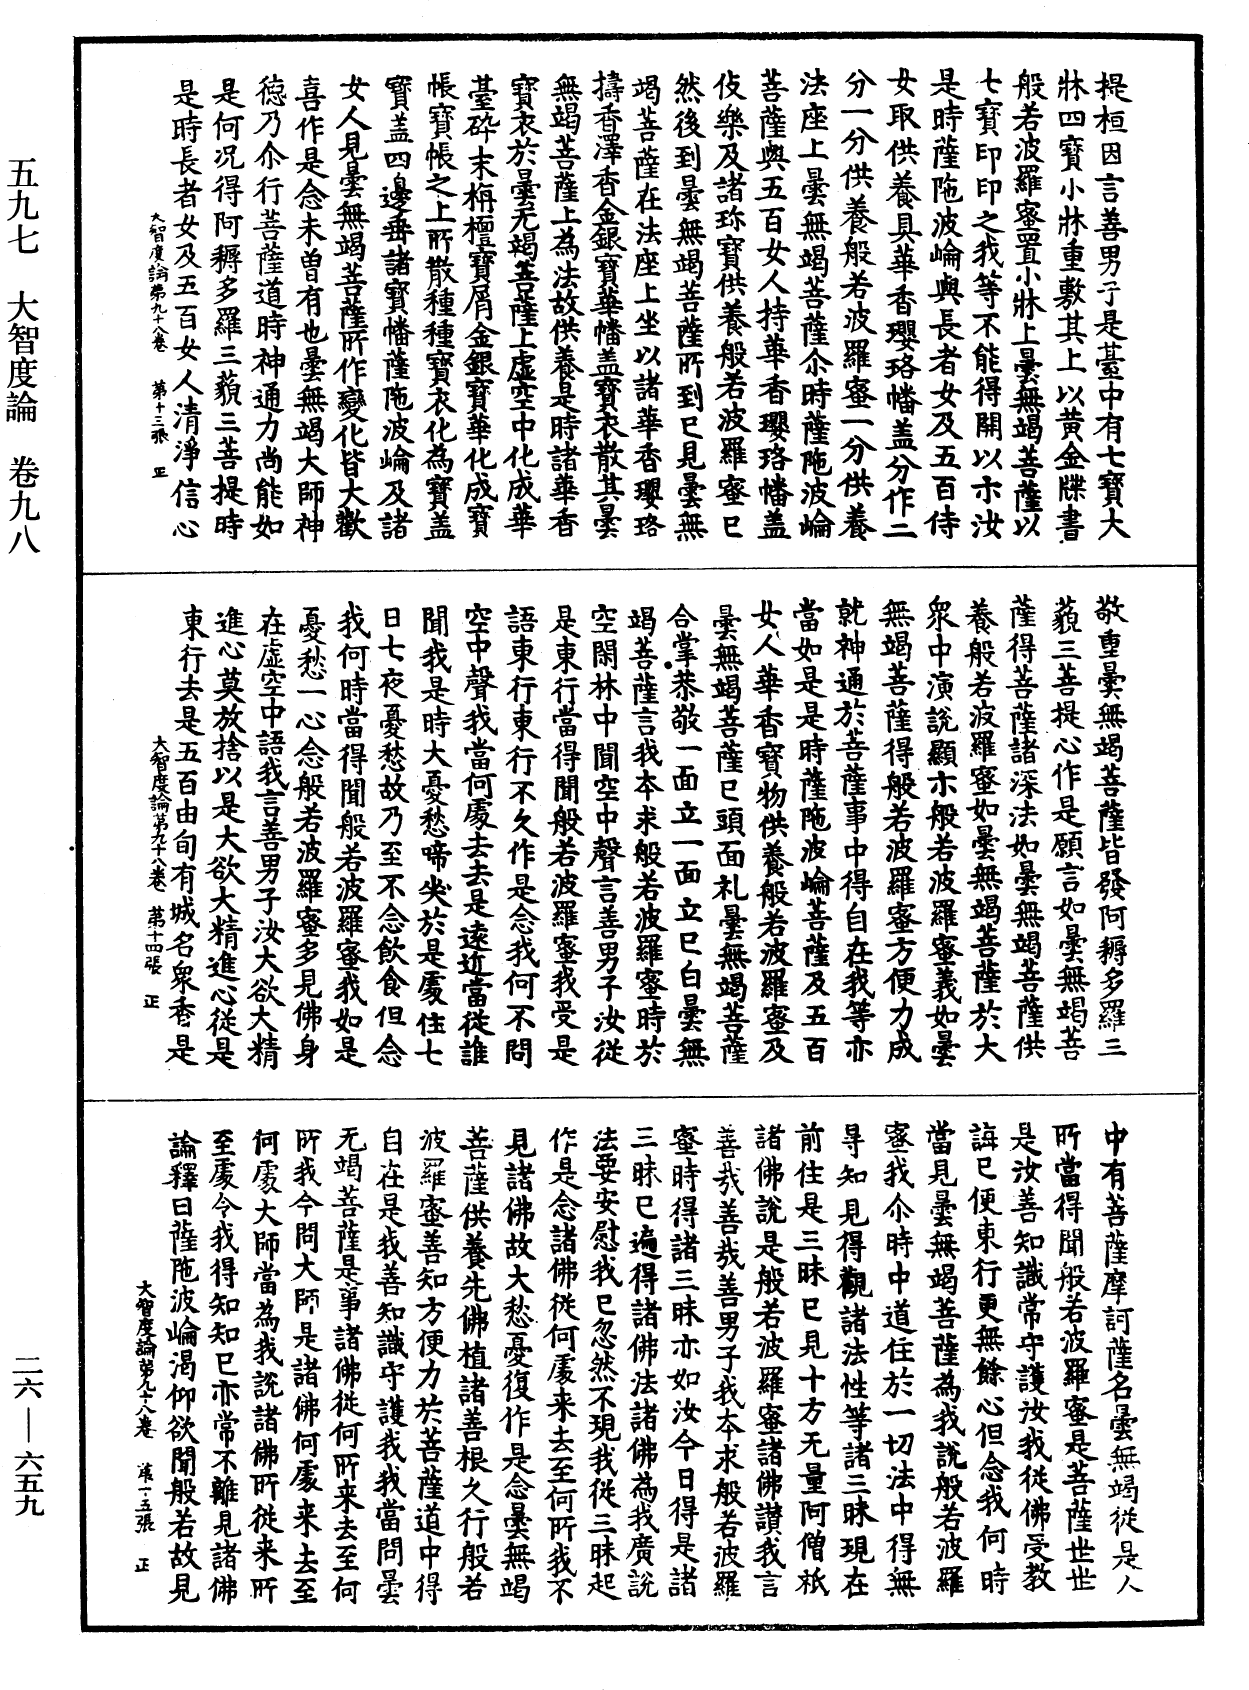 提桓因言善男子是臺中有七寶大
牀四寶小牀重敷其上以黄金牒書
般若波羅蜜置小牀上曇無竭菩薩以
七寶印印之我等不能得開以示汝
是時薩陁波崘與長者女及五百侍
女取供養具華香瓔珞幡盖分作二
分一分供養般若波羅蜜一分供養
法座上曇無竭菩薩尒時薩陁波崘
菩薩與五百女人持華香瓔珞幡盖
伎樂及諸珎寶供養般若波羅蜜已
然後到曇無竭菩薩所到已見曇無
竭菩薩在法座上坐以諸華香瓔珞
擣香澤香金銀寶華幡盖寶衣散其曇
無竭菩薩上為法故供養是時諸華香
寶衣於曇无竭菩薩上虚空中化成華
臺碎末栴檀寶屑金銀寶華化成寶
帳寶帳之上所散種種寶衣化為寶盖
寶盖四邊垂諸寶幡薩陁波崘及諸
女人見曇無竭菩薩所作變化皆大歡
喜作是念未曽有也曇無竭大師神
德乃尒行菩薩道時神通力尚能如
是何况得阿耨多羅三藐三菩提時
是時長者女及五百女人清淨信心
大智度論第九十八卷 第十三張 正
敬重曇無竭菩薩皆發阿耨多羅三
藐三菩提心作是願言如曇無竭菩
薩得菩薩諸深法如曇無竭菩薩供
養般若波羅蜜如曇無竭菩薩於大
衆中演說顯示般若波羅蜜義如曇
無竭菩薩得般若波羅蜜方便力成
就神通於菩薩事中得自在我等亦
當如是是時薩陁波崘菩薩及五百
女人華香寶物供養般若波羅蜜及
曇無竭菩薩已頭面礼曇無竭菩薩
合掌恭敬一面立一面立已白曇無
竭菩薩言我本求般若波羅蜜時於
空閑林中聞空中聲言善男子汝從
是東行當得聞般若波羅蜜我受是
語東行東行不久作是念我何不問
空中聲我當何處去去是遠近當從誰
聞我是時大憂愁啼哭於是處住七
日七夜憂愁故乃至不念飲食但念
我何時當得聞般若波羅蜜我如是
憂愁一心念般若波羅蜜多見佛身
在虚空中語我言善男子汝大欲大精
進心莫放捨以是大欲大精進心從是
東行去是五百由旬有城名衆香是
大智度論第九十八卷 第十四張 正
中有菩薩摩訶薩名曇無竭從是人
所當得聞般若波羅蜜是菩薩世世
是汝善知識常守護汝我從佛受教
誨已便東行更無餘心但念我何時
當見曇無竭菩薩為我說般若波羅
蜜我尒時中道住於一切法中得無
㝵知見得觀諸法性等諸三昧現在
前住是三昧已見十方无量阿僧祇
諸佛說是般若波羅蜜諸佛讃我言
善哉善哉善男子我本求般若波羅
蜜時得諸三昧亦如汝今日得是諸
三昧已遍得諸佛法諸佛為我廣說
法要安慰我已忽然不現我從三昧起
作是念諸佛從何處来去至何所我不
見諸佛故大愁憂復作是念曇無竭
菩薩供養先佛植諸善根久行般若
波羅蜜善知方便力於菩薩道中得
自在是我善知識守護我我當問曇
无竭菩薩是事諸佛從何所来去至何
所我今問大師是諸佛何處来去至
何處大師當為我說諸佛所從来所
至處令我得知知已亦常不離見諸佛
論釋曰薩陁波崘渴仰欲聞般若故見
大智度論第九十八卷 第十五張 正
五九七 大智度論 卷九八
二六—六五九